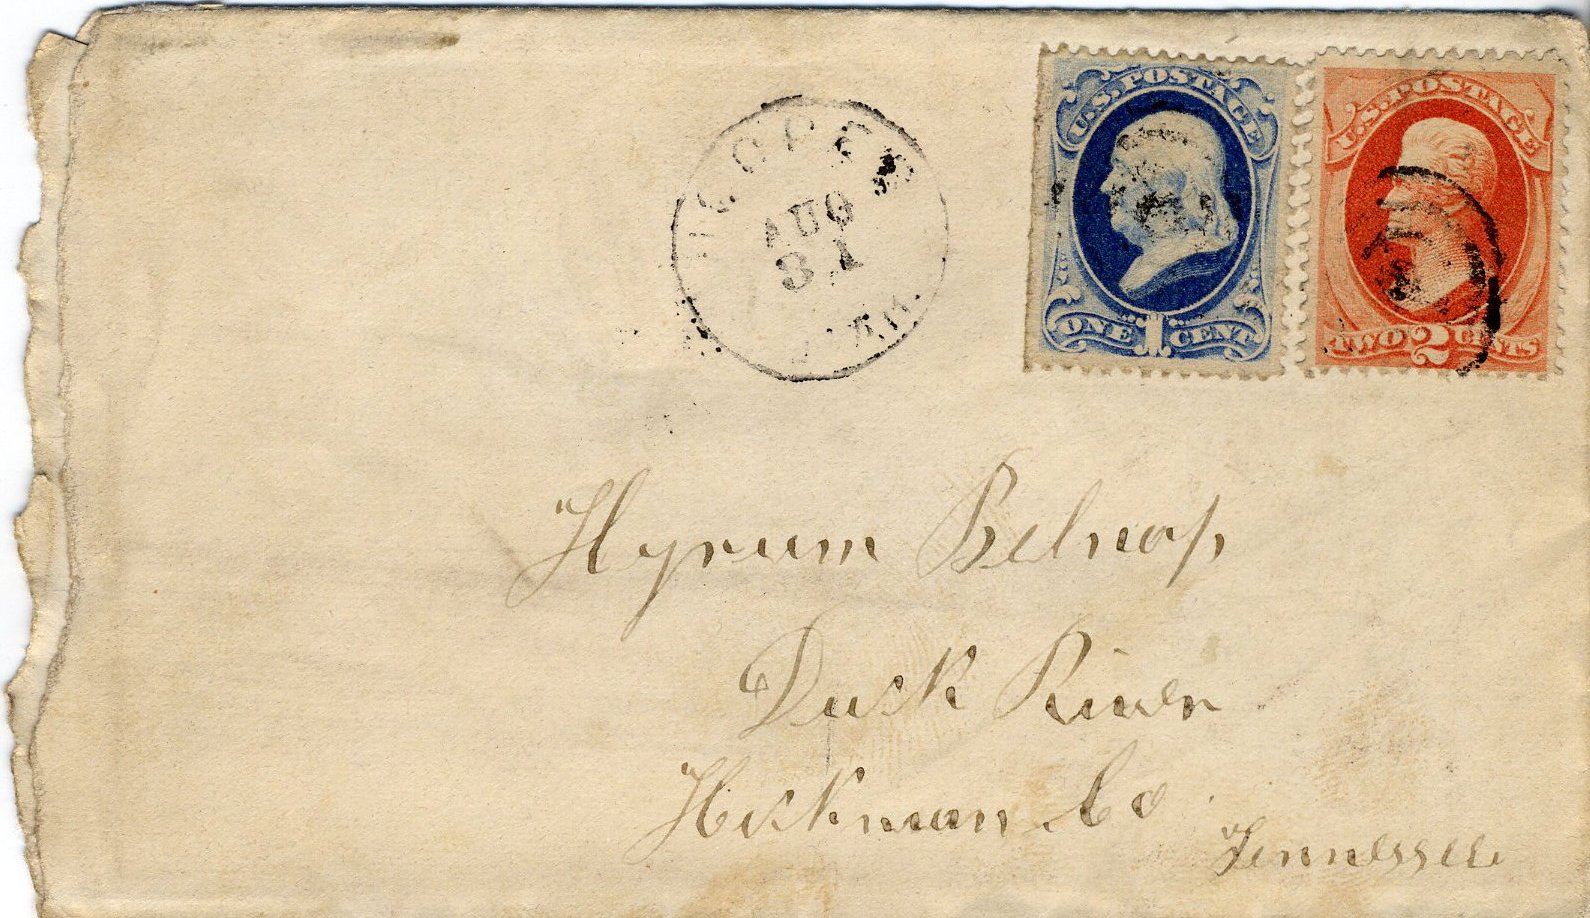 U.S. POSTAGE
ONE 1 CENT
U.S. POSTAGE
TWO 2 CENTS
AUG
31
Hyrum Belnap
Duck River
Hickman Co
Tennessee